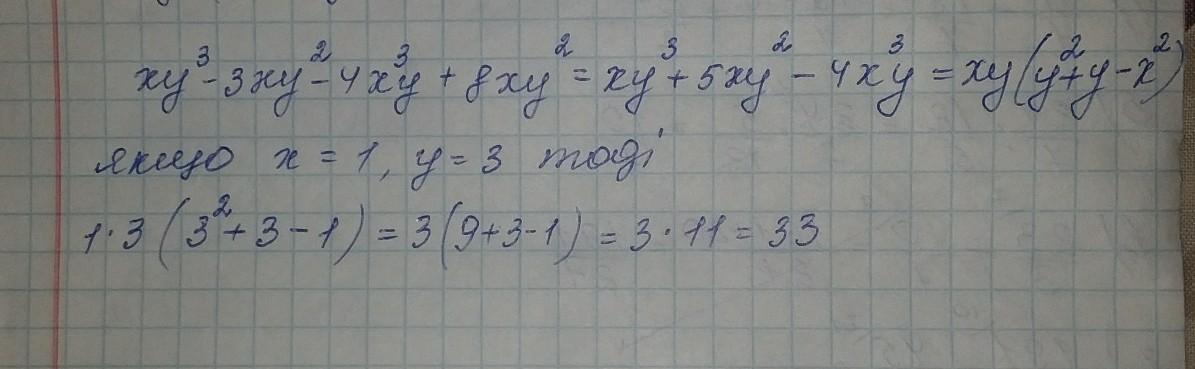 xy³ - 3xy² - 4x³y + 8xy² = xy³ + 5xy² - 4x³y = xy(y² + y - x²)
якщо x = 1, y = 3 тоді
1·3 (3² + 3 - 1) = 3(9+3-1) = 3·11 = 33